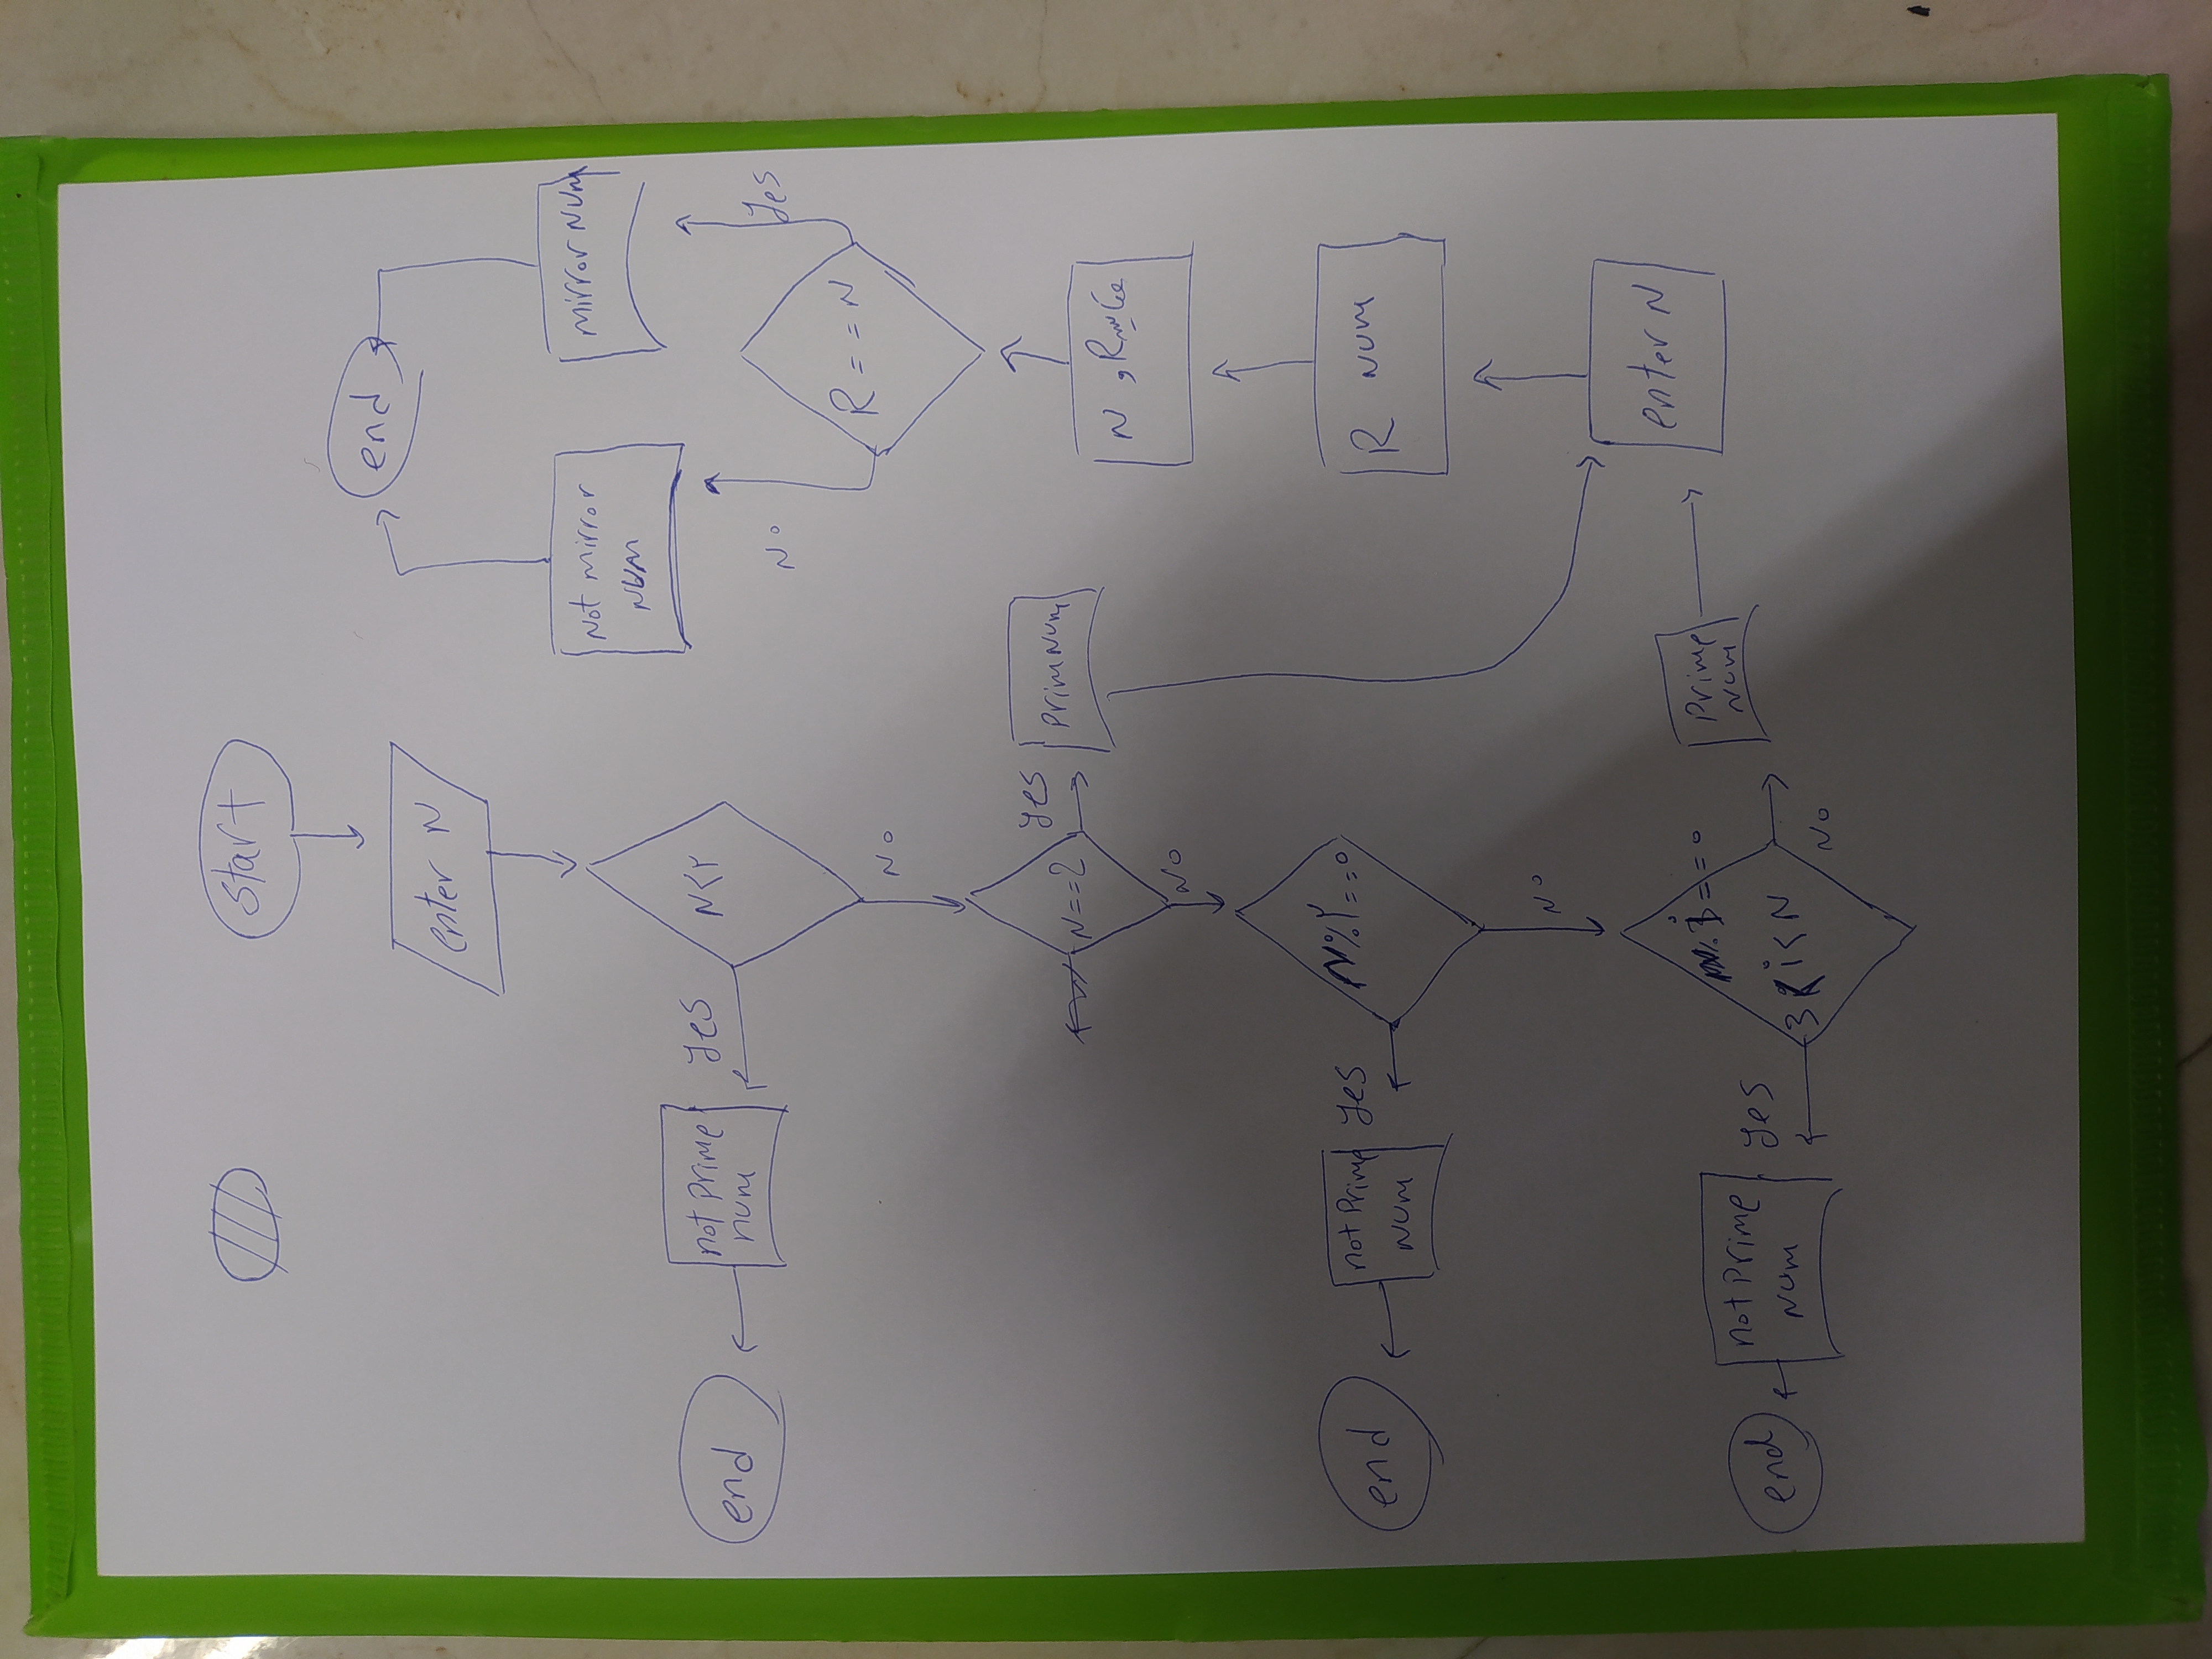 start
enter N
N<۲
yes
not prime
num
end
No
N==2
yes
primNum
No
N%۲==0
yes
not Prime
NUM
end
No
%i==0
3 i<N
yes
not Prime
NUM
end
No
Prime
NUM
enter N
R NUM
N , R
R==N
No
yes
Not mirror
NUM
mirror NUM
end